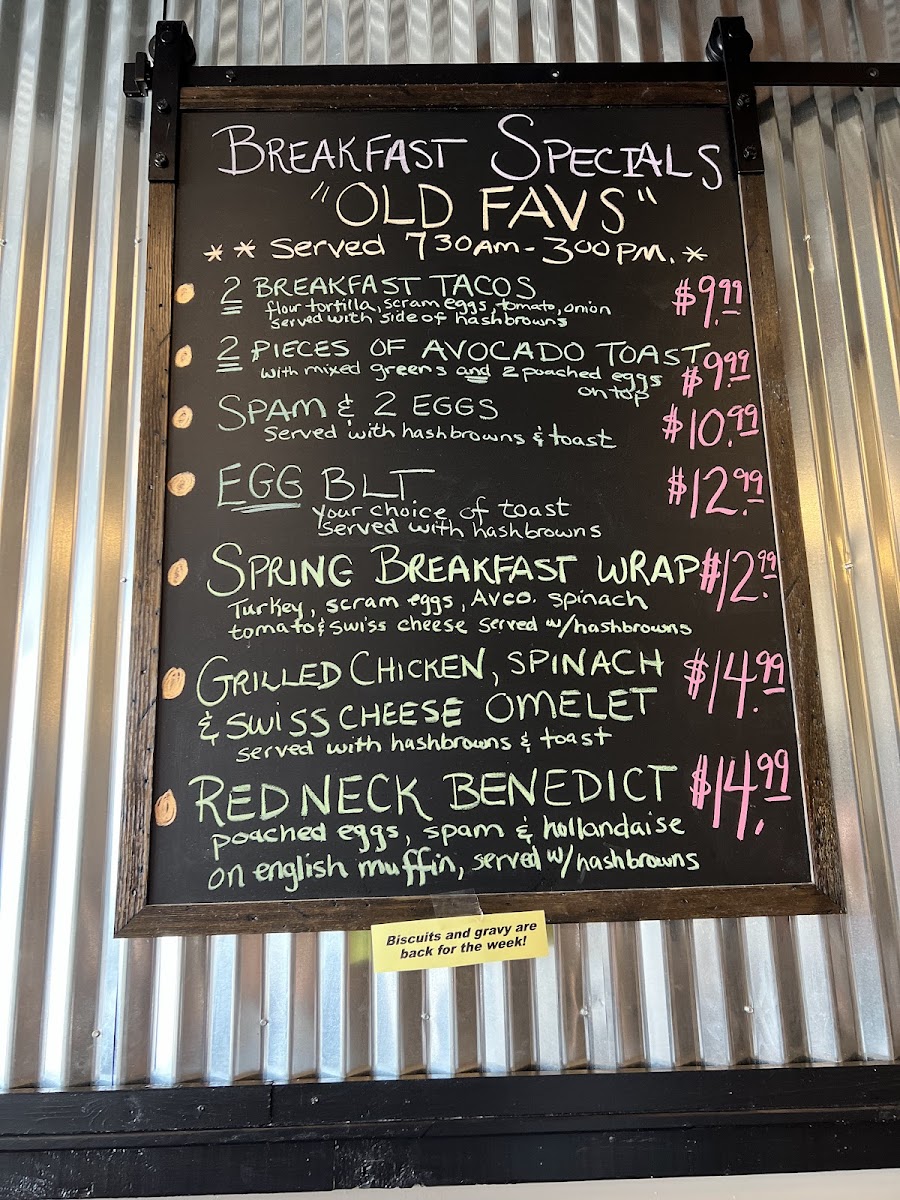 BREAKFAST SPECIALS
"OLD FAVS"
** Served 730AM-300PM.*
2 BREAKFAST TACOS $9.99
flour tortilla, scram eggs, tomato, onion
served with side of hashbrowns
2 PIECES OF AVOCADO TOAST $9.99
with mixed greens and 2 poached eggs
on top
SPAM & 2 EGGS $10.99
Served with hashbrowns & toast
EGG BLT $12.99
your choice of toast
served with hashbrowns
SPRING BREAKFAST WRAP $12.99
Turkey, scram eggs, AVCO. spinach
tomato & swiss cheese served w/hashbrowns
GRILLED CHICKEN, SPINACH $14.99
& SWISS CHEESE OMELET
served with hashbrowns & toast
REDNECK BENEDICT $14.99
poached eggs, spam & hollandaise
on english muffin, served w/hashbrowns
Biscuits and gravy are
back for the week!